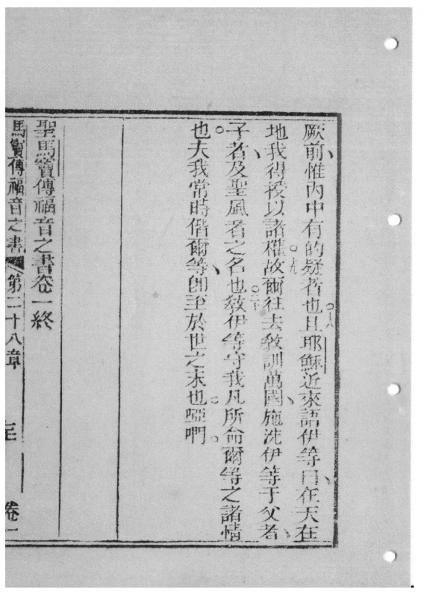 厥前惟內中有的疑者也且耶穌近來語伊等曰在天在
地我得授以諸權故爾往去敎訓萬國施洗伊等于父者
子者及聖風者之名也敎伊等守我凡所命爾等之諸情
也夫我常時偕爾等卽至於世之末也啞啊
聖馬竇傳福音之書卷一終
馬竇傳福音之書 第二十八章 卷一